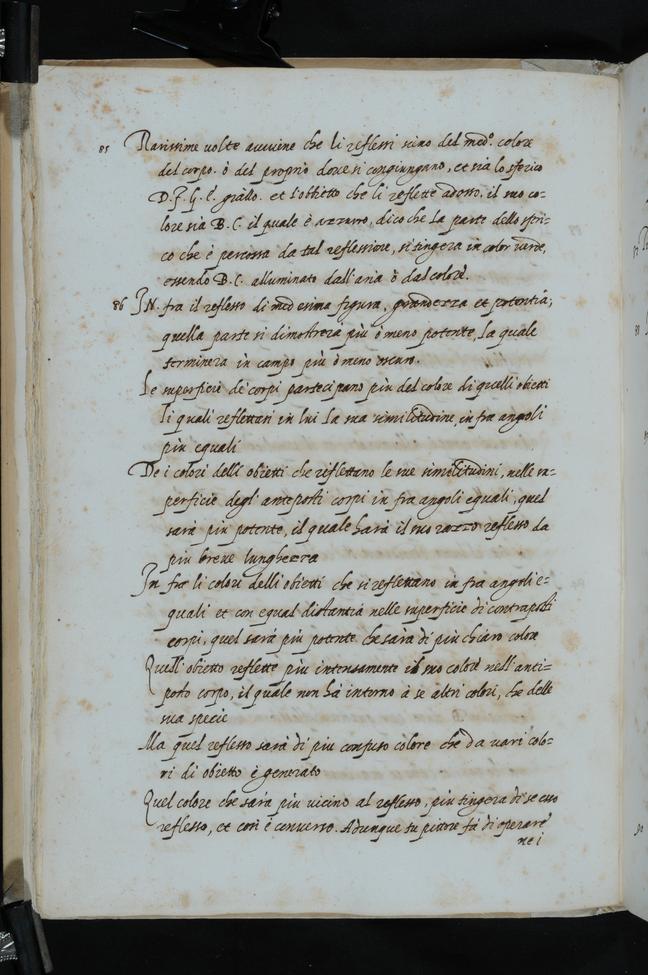 85 Rarissime uolte auuiene che li reflessi sieno del med.º colore
del corpo. ò del proprio doue si congiungano, et sia lo sferico
D.F.G.E. giallo. et l'obbietto che li reflette adosso. il suo co-
lore sia B.C. il quale è azzurro, dico che la parte dello sferi-
co che è percossa da tal reflessione, si tingera in color uerde,
essendo B.C. alluminato dall'aria ò dal sole.
86 IN. fra il reflesso di medesima figura, grandezza et potentia,
quella parte si dimostrerà più ò meno potente, La quale
terminera in campo più ò meno oscuro.
Le superficie de' corpi partecipano più del colore di quelli obietti
li quali reflettano in lui la sua similitudine, in fra angoli
più equali
De i colori delli obietti che reflettano le sue similitudini, nelle su-
perficie degl' anteposti corpi in fra angoli equali, quel
sarà più potente, il quale harà il suo razzo reflesso da
più breue lunghezza
In fra li colori delli obietti che si reflettano in fra angoli e-
quali et con equal distantia nelle superficie di contraposti
corpi, quel sarà più potente che sarà di più chiaro colore
Quell' obietto reflette più intensamente il suo colore nell' anti-
posto corpo, il quale non hà intorno à se altri colori, che delle
sua specie
Ma quel reflesso sarà di più confuso colore che da uari colo-
ri di obietto è generato
Quel colore che sarà più uicino al reflesso, più tingera di se esso
reflesso, et così è conuerso. Adunque tu pittore fà di operare
ne i